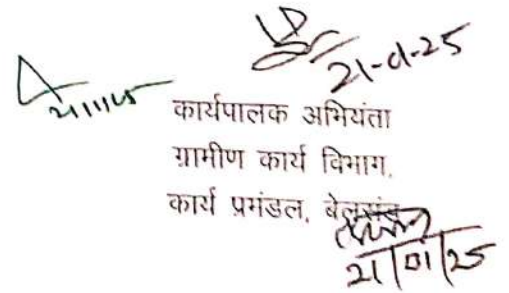 21-01-25
21/1/25
कार्यपालक अभियंता
ग्रामीण कार्य विभाग,
कार्य प्रमंडल, बेलसंड
21/01/25